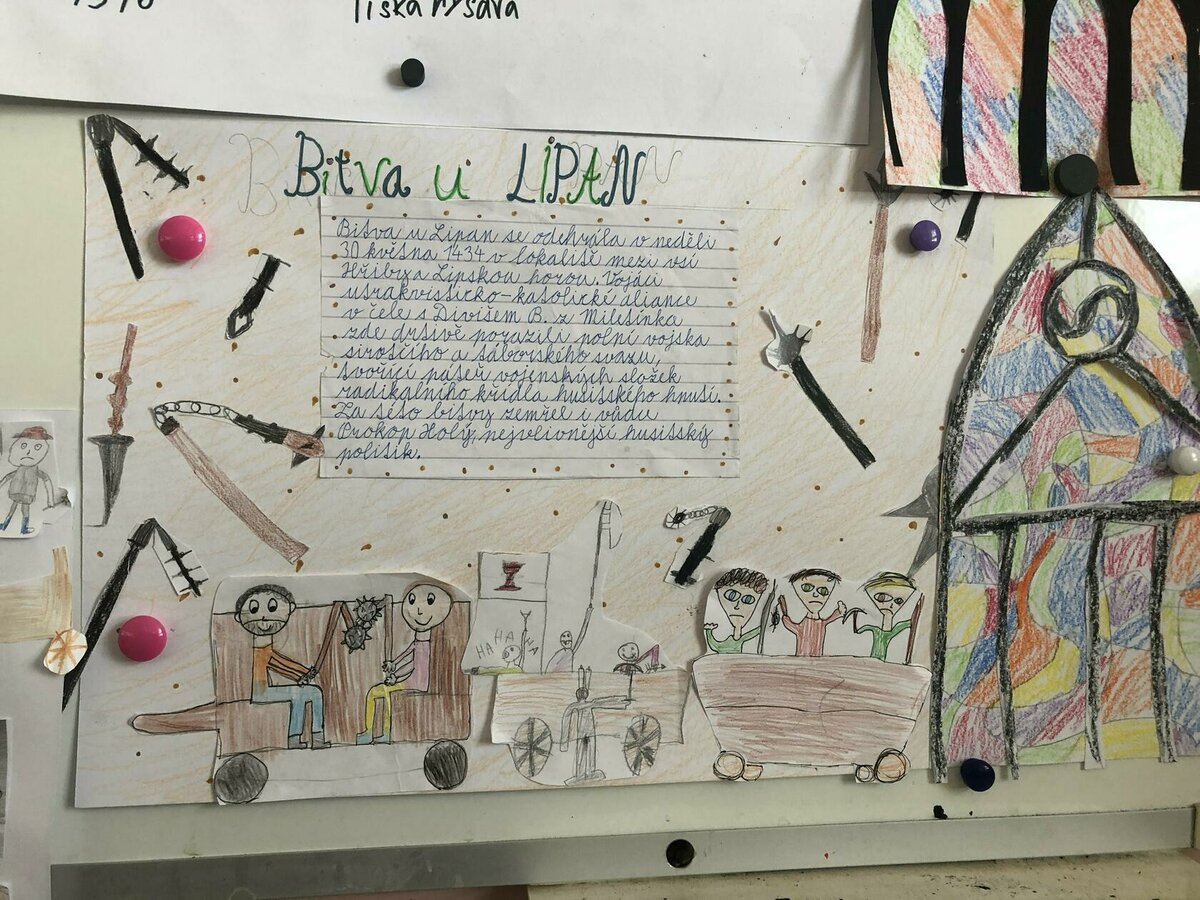 Tiska rysava
Bitva u LIPAN
Bitva u Lipan se odehrála v neděli
30 května 1434 v lokalitě mezi vsí
Hřiby a Lipskou horou. Vojáci
utrakvisticko-katolické aliance
v čele s Divišem B. z Miletínka
zde drtivě porazila polní vojska
sirotčího a táborského svazu,
tvořící páteř vojenských složek
radikálního křídla husitského hnutí.
Za této bitvy zemřel i vůdce
Prokop Holý, nejvlivnější husitský
politik.
HA HA
HA